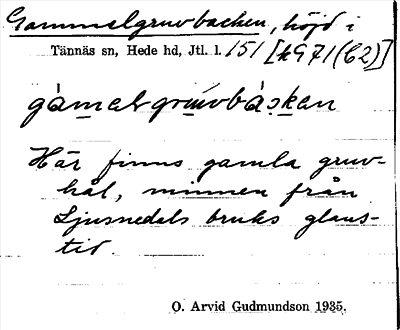 Gammelgruvbacken, höjd i
Tännäs sn, Hede hd, Jtl. l. 151 [k971(62)]
gàmelgruvbásken
Här finns gamla gruv-
hål, minnen från
Ljusnedals bruks glans-
tid
O. Arvid Gudmundson 1935.